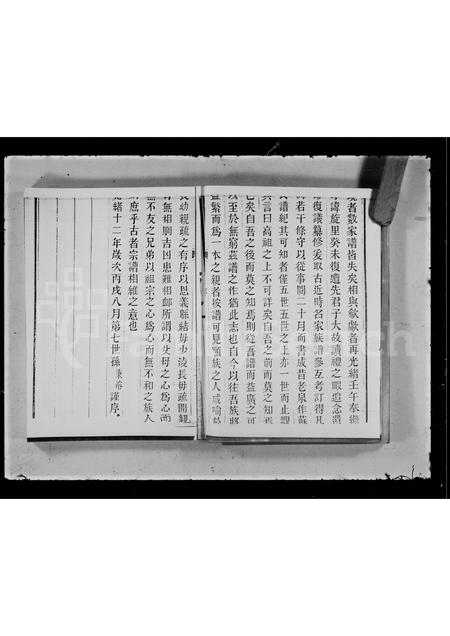 者數家譜皆失矣相與欷歔者再光緒壬午奉
諱旋里癸未復遭先君子大故讀禮之暇追念
復議纂修爰取古近時名家族譜參互考訂得凡
若干條守以從事閱二十月而書成昔老泉作蘇
氏譜紀其可知者僅五世五世之上亦一世而止
其言曰高祖之上不可詳矣自吾之前而莫之知焉
已矣自吾之後而莫之知焉則從吾譜而益廣之可
以至於無窮茲譜之作猶此志也自今以往吾族將
益繁而為一本之親者按譜可見願族之人咸喻於
長幼親疏之有序以恩義聯結毋少淩長毋疏間親
有無相賙吉凶患難相卹所謂以父母之心為心而
無不友之兄弟以祖宗之心為心而無不和之族人
庶乎古者宗譜相維之意也
光緒十二年歲次丙戌八月第七世孫謹序